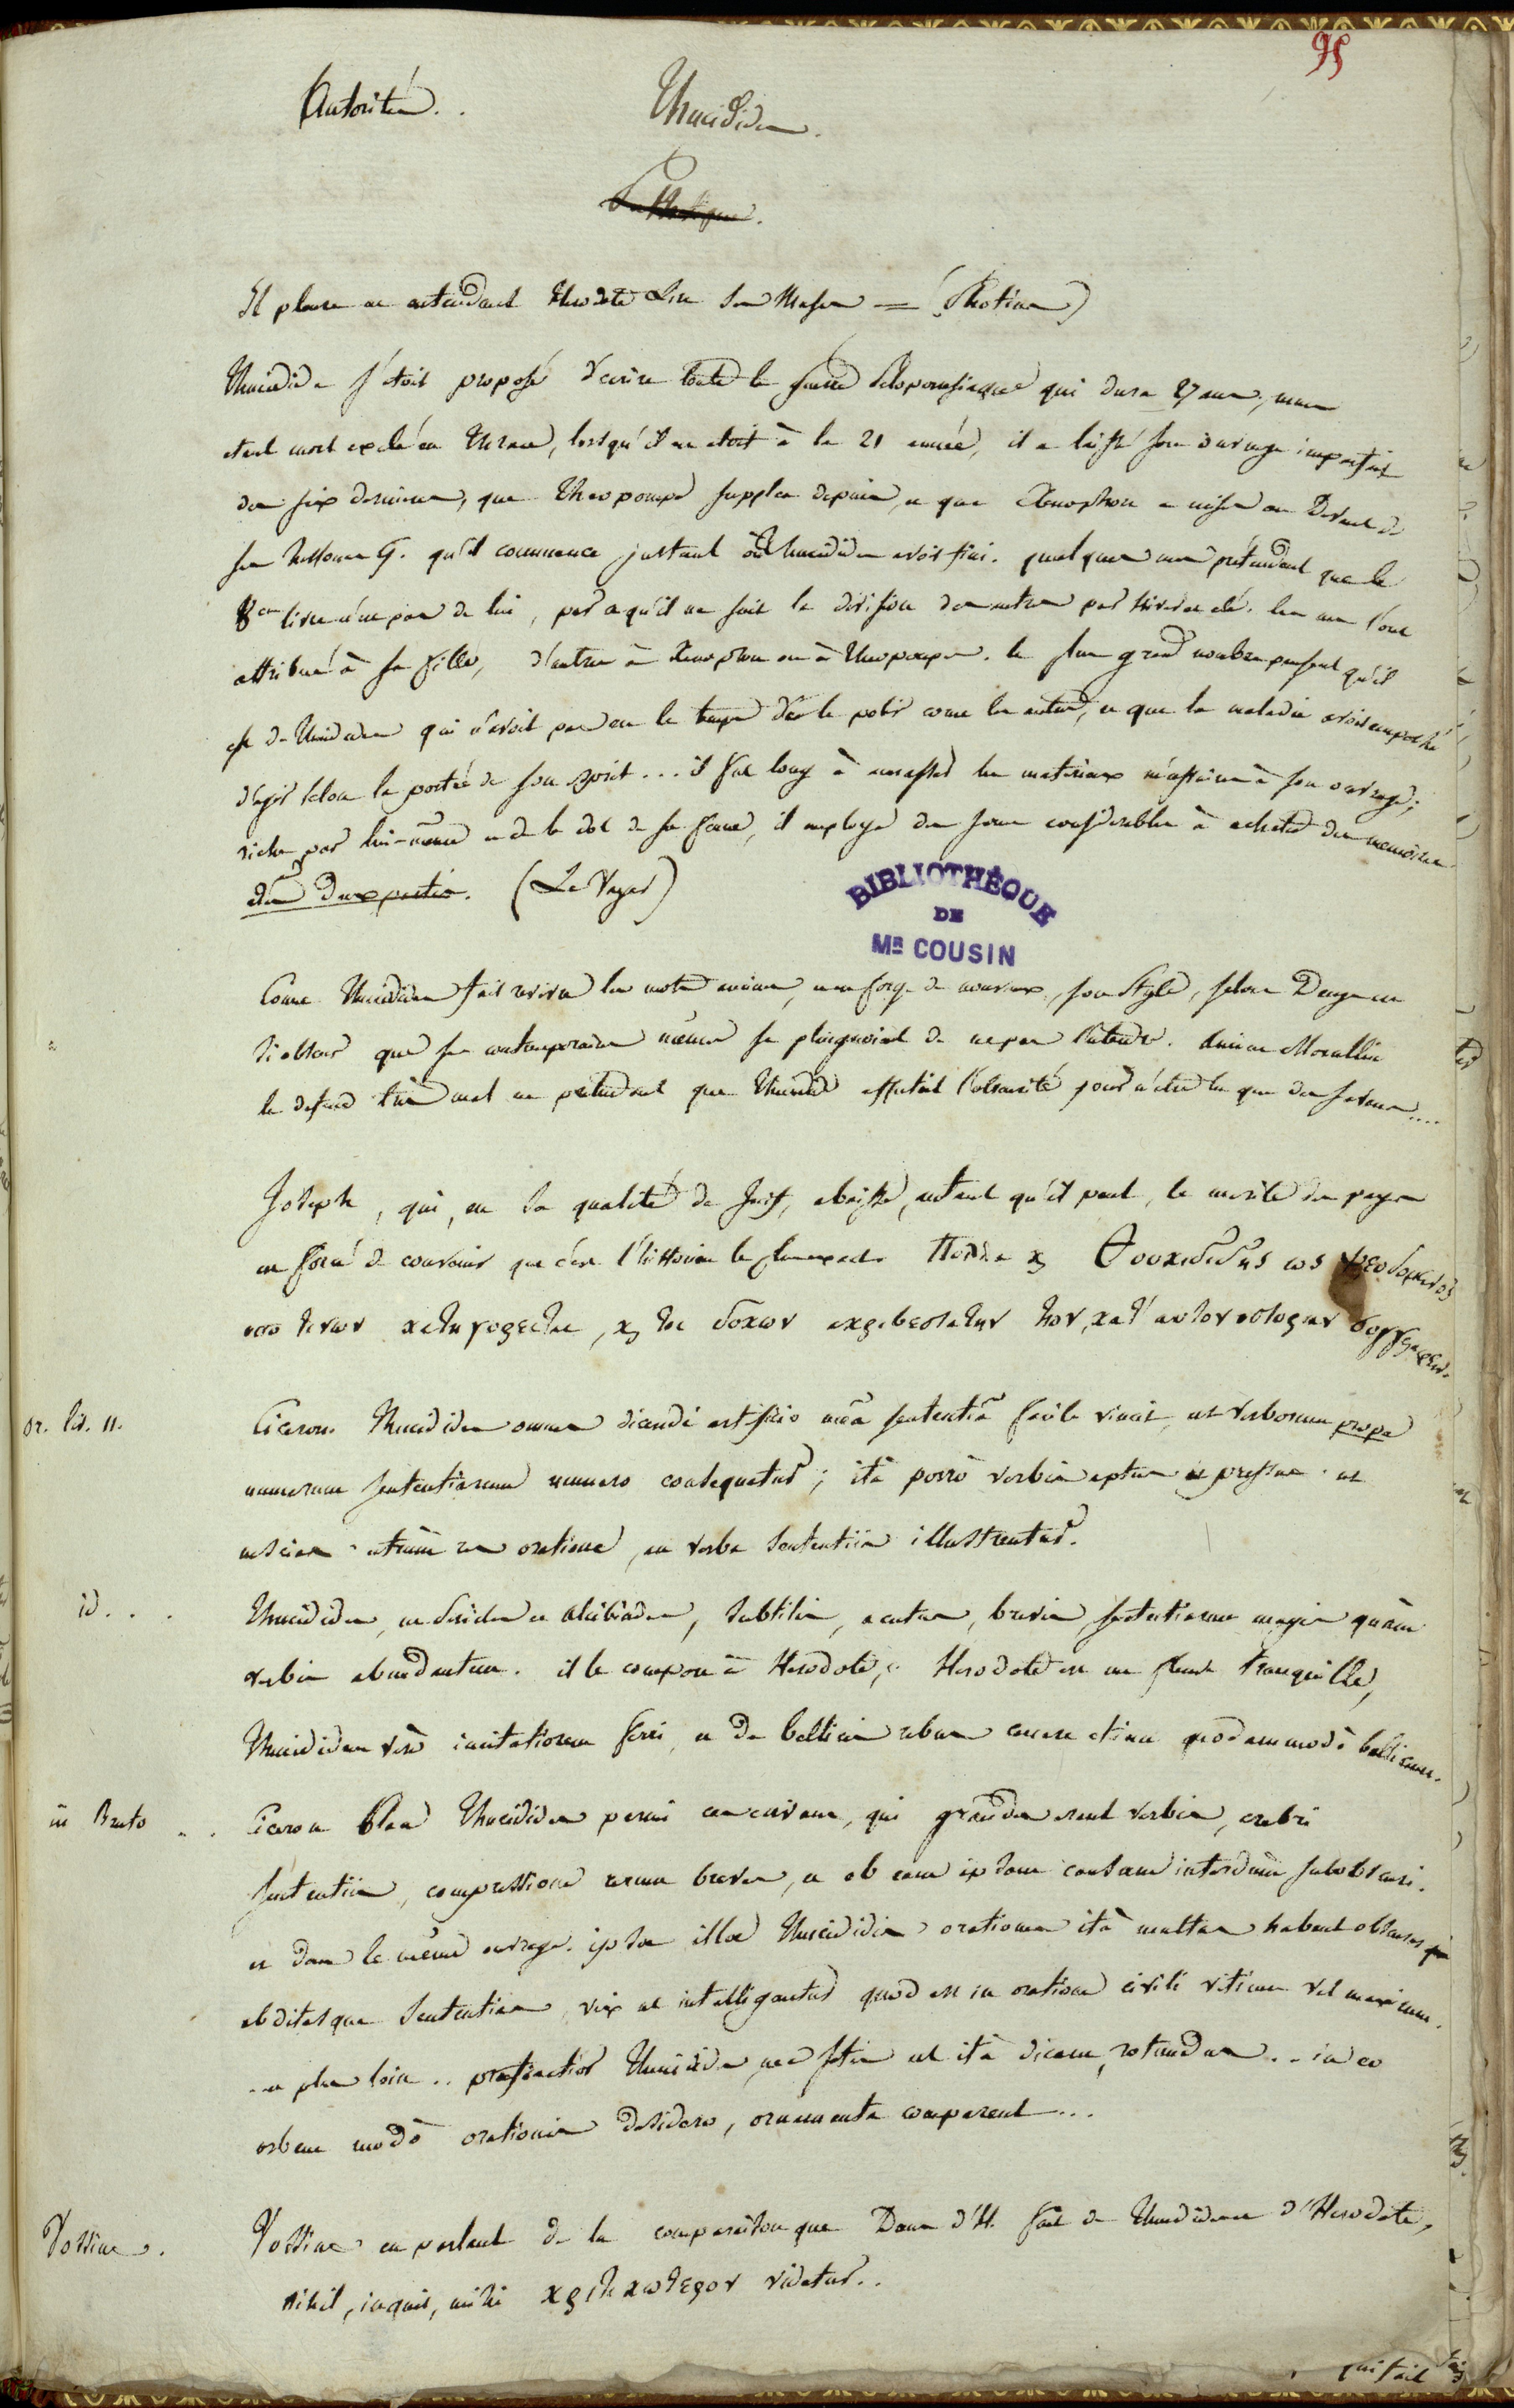 95
Autorités..
Thucidides.
Pathetique.
Il pleure en entendant Herodote Lire Ses Muses = (Photius)
Thucidide s'étoit proposé d'ecrire toute la guerre Peloponesiaque qui dura 27 ans, mais
etant mort exilé en Thrace, lorsqu'il en etoit à la 21 année, il a laissé son ouvrage imparfait
des six dernieres, que Theopompe supplea depuis, et que Xenophon a mises au devant de
son histoire G. qu'il commence justant où Thucidides avoit fini. quelques uns prétendent que le
8em livre n'est pas de lui, par ce qu'il ne suit la division des autres par hiver et été. les uns l'ont
attribué à sa fille, d'autres à Xenophon ou à Theopompe. le plus grand nombre pensent qu'il
est de Thucidides qui n'avoit pas eu le temps de le polir come les autres, et que la maladie avoit empeché
d'agir selon la portée de son esprit... il fut long à amasser les materiaux necessaires à son ouvrage;
riche par lui-même et de la dot de sa feme, il employa des somes considerables à acheter des memoires
des deux partis. (Le Vayer)
BIBLIOTHÈQUE
DE
MR COUSIN
Come Thucidides fait revivre les mots anciens, et en forge de nouveaux, son Style, selon Denys est
si obscur que ses contemporains mêmes se plaignoient de ne pas l'entendre. Amien Marcellin
le defend très mal en pretendant que Thucidide affectoit l'obscurité pour n'être lu que des savans....
Joseph, qui, en sa qualité de Juif, abaisse, autant qu'il peut, le merite des payens
est forcé de convenir que c'est l'histoire la plus exacte. ϗ Θουκιδιδης ως ψευδομενος
υπο τινων κατηγορειται, ϗ τοι δοκων ακριβεστατην την κατ' αυτον ιστοριαν συγγραφειν.
or. lib. 11.
Ciceron. Thucidides omnes dicendi artificio meâ sententiâ facile vincit, ut verborum prope
numerum sententiarum numero consequatur; ità porrò verbis aptus et pressus ut
nescias utrùm res oratione, an verba sententiis illustrentur.
id...
Thucidides, et Pericles et Alcibiades, subtiles, acuti, breves, sententiarum magis quàm
verbis abundantes. il le compare à Herodote, Herodote est un fleuve tranquille,
Thucididem verò incitatiorem ferri, et de bellicis rebus canere etiam quodam modò bellicum.
in Bruto..
Ciceron place Thucidides parmi ces ecrivains, qui grandes erant verbis, crebri
sententiis, compressione rerum breves, et ob eam ipsam causam interdùm subobscuri.
et dans le même ouvrage. ipsae illae Thucididis orationes ità multas habent obscuras
abditasque sententias, vix ut intelligantur quod est in oratione civili vitium vel maximum.
.. et plus loin.. praefractior Thucidides, nec satis ut ità dicam, rotundus... in eo
orbem modò orationis desidero, ornamenta comparent...
Vossius.
Vossius en parlant de la comparaison que Denys d'H. fait de Thucidides et d'Herodote,
nihil, inquit, mihi κριτικωτερον videtur..
qui fait